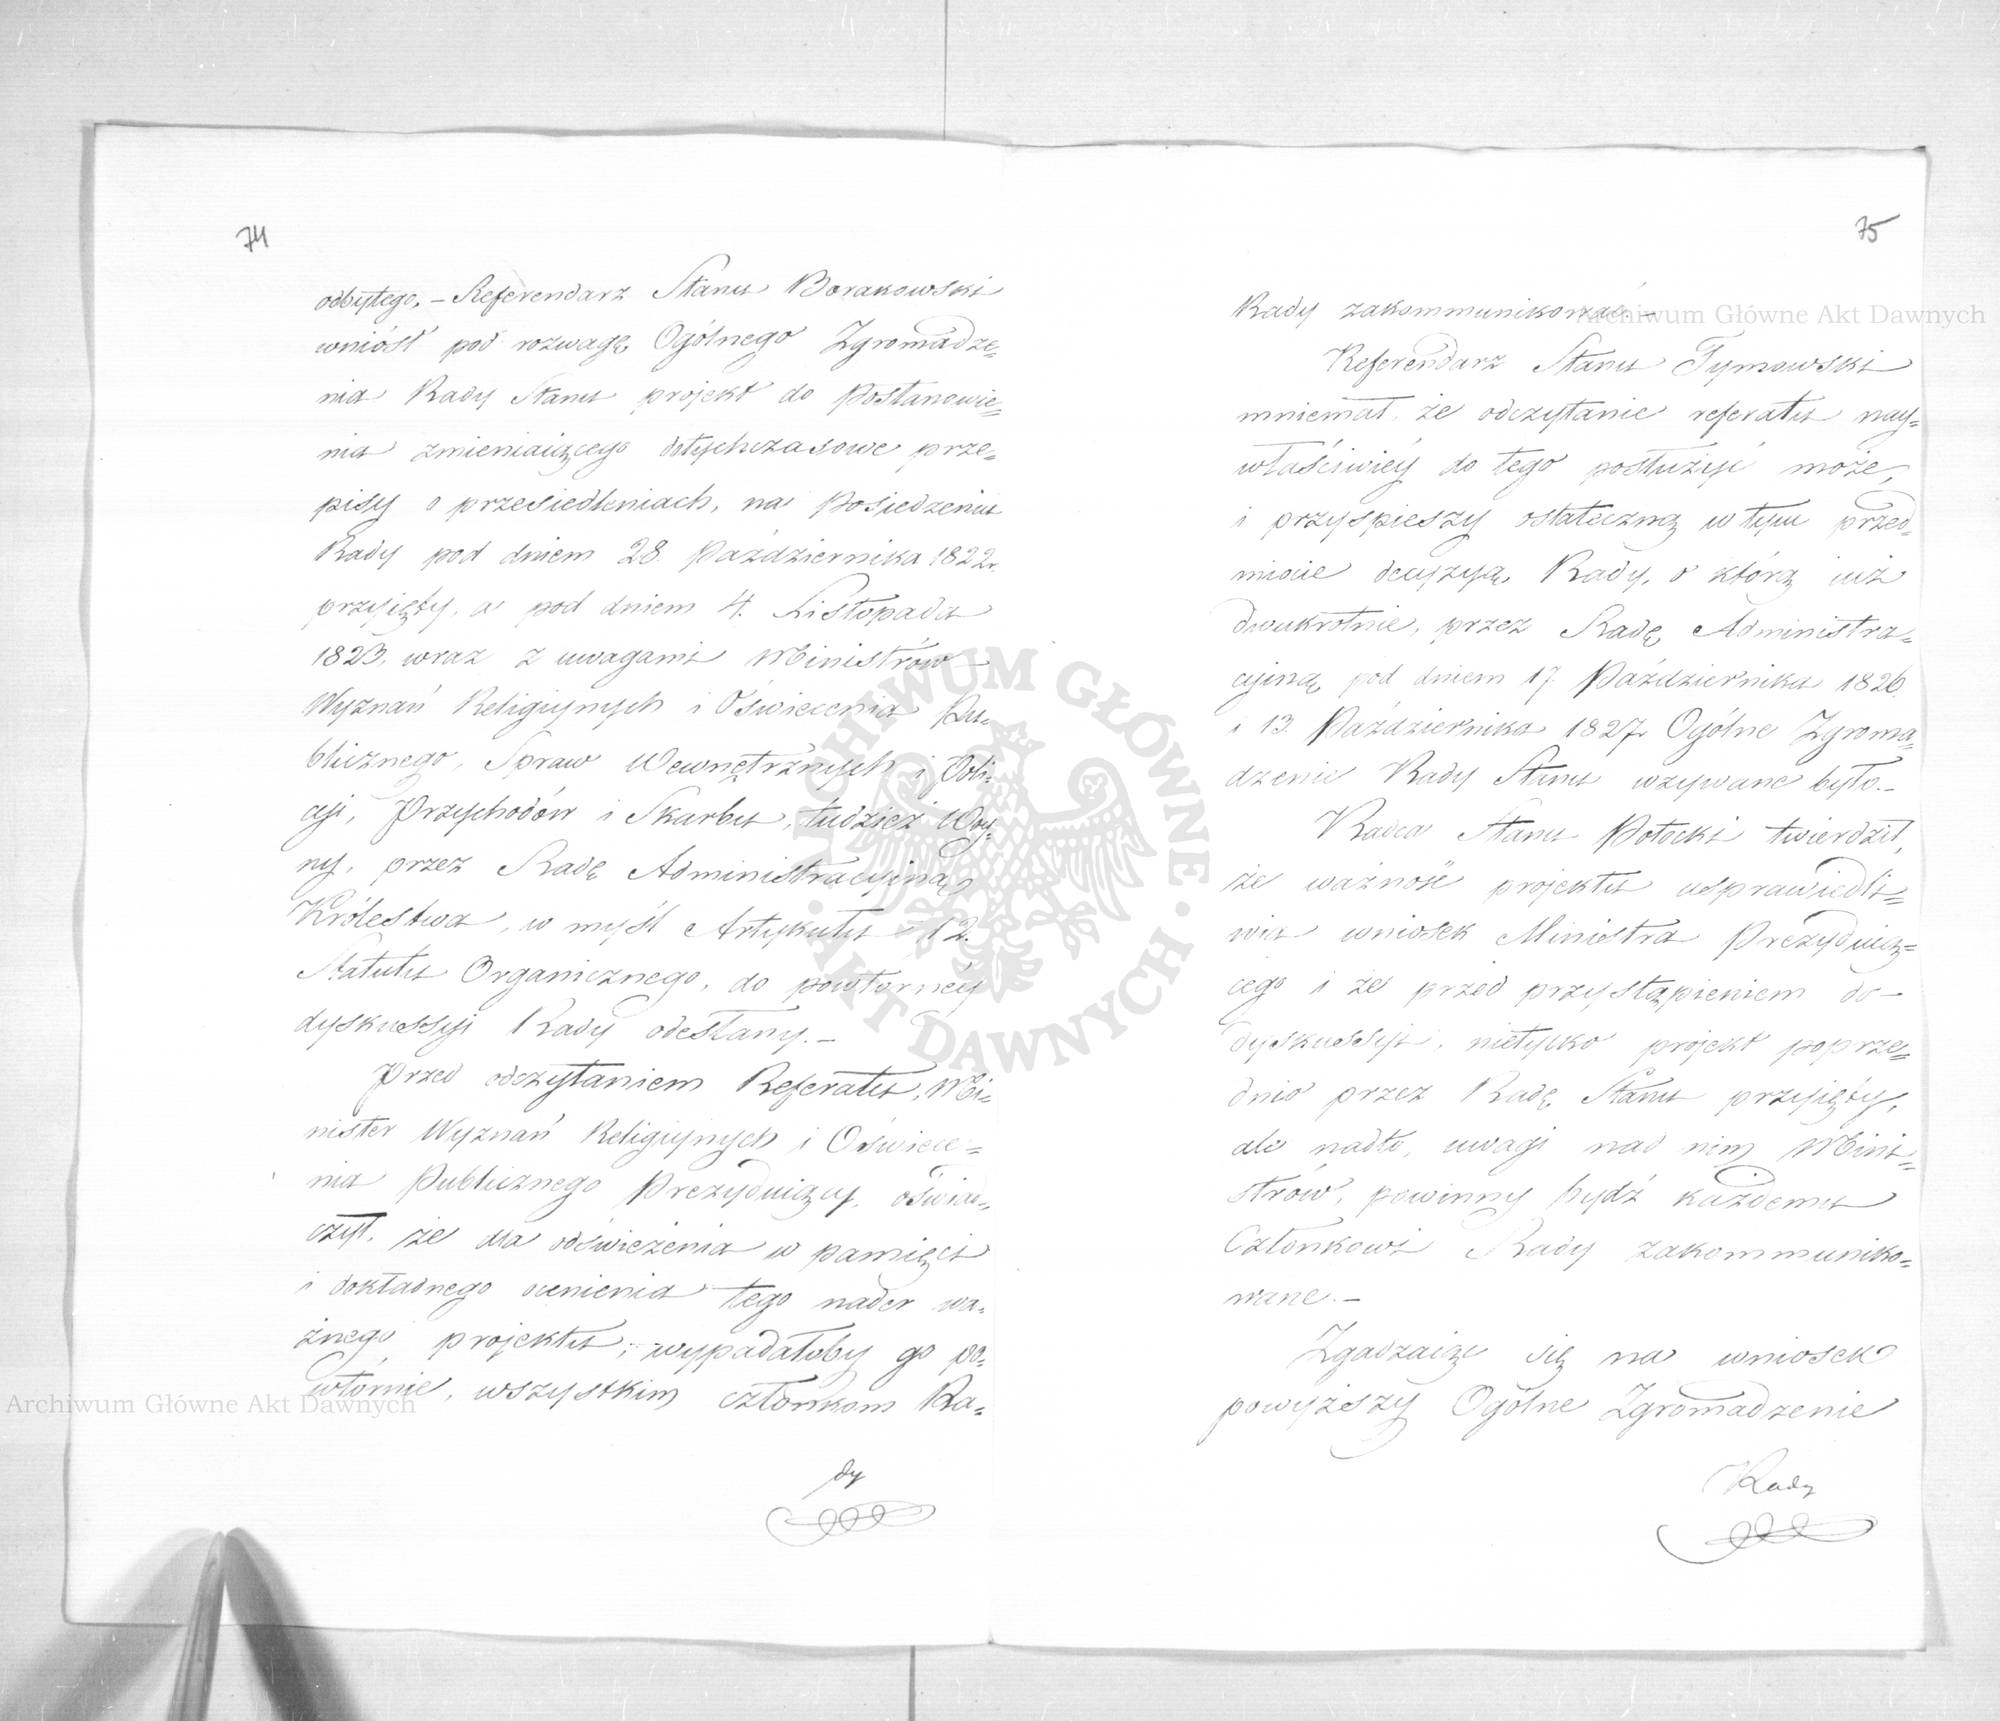 74
odbytego. – Referendarz Stanu Borakowski
wniósł pod rozwagę Ogólnego Zgromadze=
nia Rady Stanu projekt do Postanowie=
nia zmieniaiącego dotychczasowe prze=
pisy o przesiedleniach, na Posiedzeniu
Rady pod dniem 28. Października 1822r.
przyięty, a pod dniem 4. Listopada
1823. wraz z uwagami Ministrów
Wyznań Religiynych i Oświecenia Pu=
blicznego, Spraw Wewnętrznych i Poli=
cyi, Przychodów i Skarbu, tudzież Woy=
ny, przez Radę Administracyiną
Królestwa, w myśl Artykułu 12.
Statutu Organicznego, do powtórnéy
dyskussyi Rady odesłany. –
Przed odczytaniem Referatu, Mi=
nister Wyznań Religiynych i Oświece=
nia Publicznego Prezyduiący, oświad=
czył, że dla odświeżenia w pamięci
i dokładnego ocenienia tego nader wa=
żnego projektu, wypadałoby go po=
wtórnie, wszystkim członkom Ra=
dy
75
Rady zakommunikować. –
Referendarz Stanu Tymowski
mniemał, że odczytanie referatu nay=
właściwiéy do tego posłużyć może,
i przyspieszy ostateczną w tym przed=
miocie decyzyą Rady, o którą iuż
dwukrotnie, przez Radę Administra=
cyiną pod dniem 17. Października 1826.
i 13. Października 1827r. Ogólne Zgroma=
dzenie Rady Stanu wzywane było. –
Radca Stanu Potocki twierdził,
że ważność projektu usprawiedli=
wia wniosek Ministra Prezyduią=
cego i że przed przystąpieniem do
dyskussyi, nietylko projekt poprze=
dnio przez Radę Stanu przyięty,
ale nadto, uwagi nad nim Mini=
strów, powinny bydź każdemu
Członkowi Rady zakommuniko=
wane. –
Zgadzaiąc się na wniosek
powyższy Ogólne Zgromadzenie
Rady
Archiwum Główne Akt Dawnych
Archiwum Główne Akt Dawnych
ARCHIWUM GŁÓWNE · AKT DAWNYCH ·